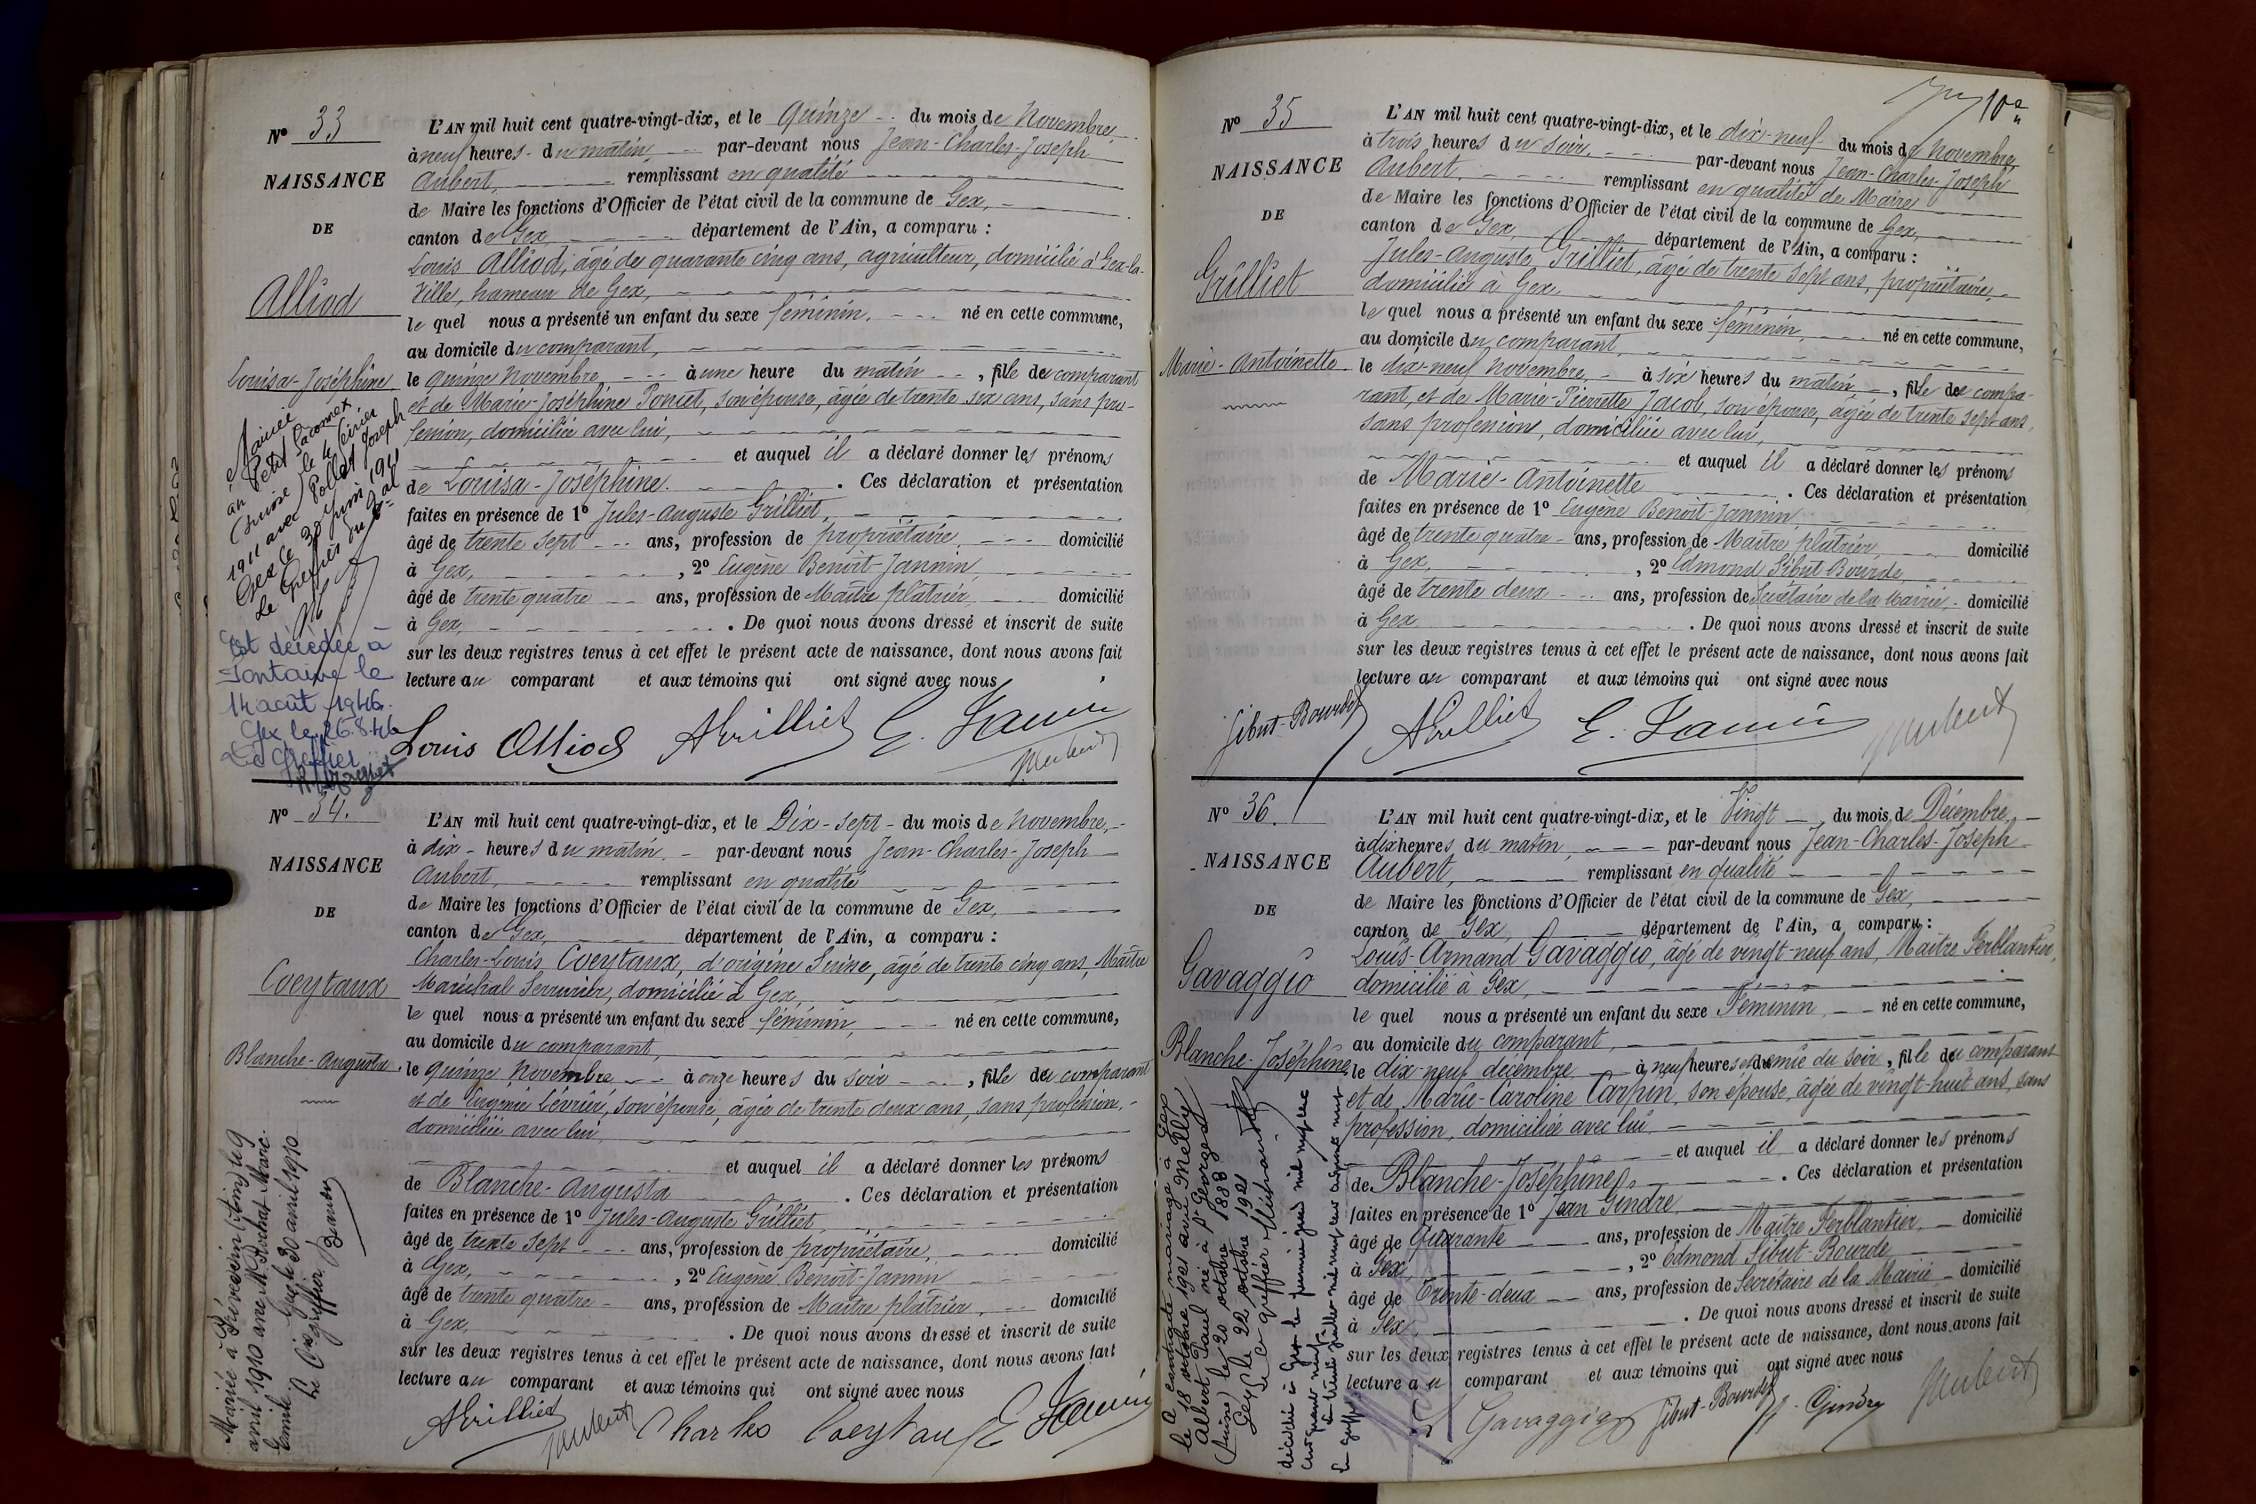 N° 33
NAISSANCE
DE
Alliod
Louisa-Joséphine
Mariée
au Petit Saconnex
(Suisse) le 4 février
1911 avec Pollet Joseph
Gex le 30 juin 1911
Le Greffier du Bal
Est décédée à
Fontaine le
14 août 1946.
Gex le 26.8.46
Le Greffier
L'AN mil huit cent quatre-vingt-dix, et le quinze du mois de Novembre,
à neuf heures du matin, par-devant nous Jean-Charles-Joseph
Aubert, remplissant en qualité
de Maire les fonctions d'Officier de l'état civil de la commune de Gex,
canton de Gex, département de l'Ain, a comparu :
Louis Alliod, âgé de quarante cinq ans, agriculteur, domicilié à Gex-la-
Ville, hameau de Gex,
le quel nous a présenté un enfant du sexe féminin, né en cette commune,
au domicile du comparant,
le quinze Novembre à une heure du matin, fille du comparant
et de Marie-Joséphine Poncet, son épouse, âgée de trente six ans, sans pro-
fession, domiciliée avec lui,
et auquel il a déclaré donner les prénoms
de Louisa-Joséphine. Ces déclaration et présentation
faites en présence de 1° Jules-Auguste Grilliet,
âgé de trente sept ans, profession de propriétaire, domicilié
à Gex, , 2° Eugène Benoît-Jannin
âgé de trente quatre ans, profession de Maître plâtrier, domicilié
à Gex, . De quoi nous avons dressé et inscrit de suite
sur les deux registres tenus à cet effet le présent acte de naissance, dont nous avons fait
lecture au comparant et aux témoins qui ont signé avec nous
Louis Alliod AGrilliet E. Jannin JAubert
N° 34.
NAISSANCE
DE
Coeytaux
Blanche-Augusta.
Mariée à Prévessin (Ain) le 9
avril 1910 avec M. Rochat Marc-
Emile. Gex le 30 avril 1910
Le Cis greffier
L'AN mil huit cent quatre-vingt-dix, et le Dix-sept du mois de Novembre,
à dix heures du matin, par-devant nous Jean-Charles-Joseph
Aubert, remplissant en qualité
de Maire les fonctions d'Officier de l'état civil de la commune de Gex,
canton de Gex, département de l'Ain, a comparu :
Charles-Louis Coeytaux, d'origine Suisse, âgé de trente cinq ans, Maître
Maréchal Serrurier, domicilié à Gex,
le quel nous a présenté un enfant du sexe féminin, né en cette commune,
au domicile du comparant,
le quinze Novembre à onze heures du soir, fille du comparant
et de Eugénie Levrier, son épouse, âgée de trente deux ans, sans profession,
domiciliée avec lui
et auquel il a déclaré donner les prénoms
de Blanche-Augusta. Ces déclaration et présentation
faites en présence de 1° Jules-Auguste Grilliet,
âgé de trente sept ans, profession de propriétaire, domicilié
à Gex, , 2° Eugène Benoît-Jannin
âgé de trente quatre ans, profession de Maître plâtrier, domicilié
à Gex, . De quoi nous avons dressé et inscrit de suite
sur les deux registres tenus à cet effet le présent acte de naissance, dont nous avons fait
lecture au comparant et aux témoins qui ont signé avec nous
AGrilliet JAubert Charles Coeytaux E Jannin
10e
N° 35
NAISSANCE
DE
Grilliet
Marie-Antoinette
L'AN mil huit cent quatre-vingt-dix, et le dix-neuf du mois de Novembre
à trois heures du soir, par-devant nous Jean-Charles-Joseph
Aubert, remplissant en qualité de Maire
de Maire les fonctions d'Officier de l'état civil de la commune de Gex,
canton de Gex, département de l'Ain, a comparu :
Jules-Auguste Grilliet, âgé de trente sept ans, propriétaire,
domicilié à Gex
le quel nous a présenté un enfant du sexe féminin, né en cette commune,
au domicile du comparant,
le dix-neuf Novembre, à six heures du matin, fille du compa-
rant, et de Marie-Pierrette Jacob, son épouse, âgée de trente sept ans,
sans profession, domiciliée avec lui,
et auquel il a déclaré donner les prénoms
de Marie-Antoinette. Ces déclaration et présentation
faites en présence de 1° Eugène Benoît-Jannin
âgé de trente quatre ans, profession de Maître plâtrier, domicilié
à Gex, , 2° Edmond Sibut Bourde,
âgé de trente deux ans, profession de Secrétaire de la Mairie, domicilié
à Gex . De quoi nous avons dressé et inscrit de suite
sur les deux registres tenus à cet effet le présent acte de naissance, dont nous avons fait
lecture au comparant et aux témoins qui ont signé avec nous
Sibut-Bourde AGrilliet E. Jannin JAubert
N° 36.
NAISSANCE
DE
Gavaggio
Blanche-Joséphine
A contracté mariage à Gex
le 18 octobre 1921 avec Melly
Albert Paul né à St Georges
(Suisse) le 20 octobre 1888
Gex le 22 octobre 1921
Le Cis greffier
décédée à Gex le premier juin mil neuf cent
cinquante neuf
L'AN mil huit cent quatre-vingt-dix, et le Vingt du mois de Décembre,
à dix heures du matin, par-devant nous Jean-Charles-Joseph
Aubert, remplissant en qualité
de Maire les fonctions d'Officier de l'état civil de la commune de Gex,
canton de Gex, département de l'Ain, a comparu :
Louis-Armand Gavaggio, âgé de vingt-neuf ans, Maître Ferblantier,
domicilié à Gex,
le quel nous a présenté un enfant du sexe Féminin, né en cette commune,
au domicile du comparant,
le dix-neuf décembre à neuf heures et demie du soir, fille du comparant
et de Marie-Caroline Carpin, son épouse, âgée de vingt-huit ans, sans
profession, domiciliée avec lui
et auquel il a déclaré donner les prénoms
de Blanche-Joséphine. Ces déclaration et présentation
faites en présence de 1° Jean Gindre,
âgé de Quarante ans, profession de Maître Ferblantier, domicilié
à Gex, , 2° Edmond Sibut-Bourde
âgé de Trente-deux ans, profession de Secrétaire de la Mairie domicilié
à Gex, . De quoi nous avons dressé et inscrit de suite
sur les deux registres tenus à cet effet le présent acte de naissance, dont nous avons fait
lecture au comparant et aux témoins qui ont signé avec nous
L Gavaggio Sibut-Bourde J. Gindre JAubert